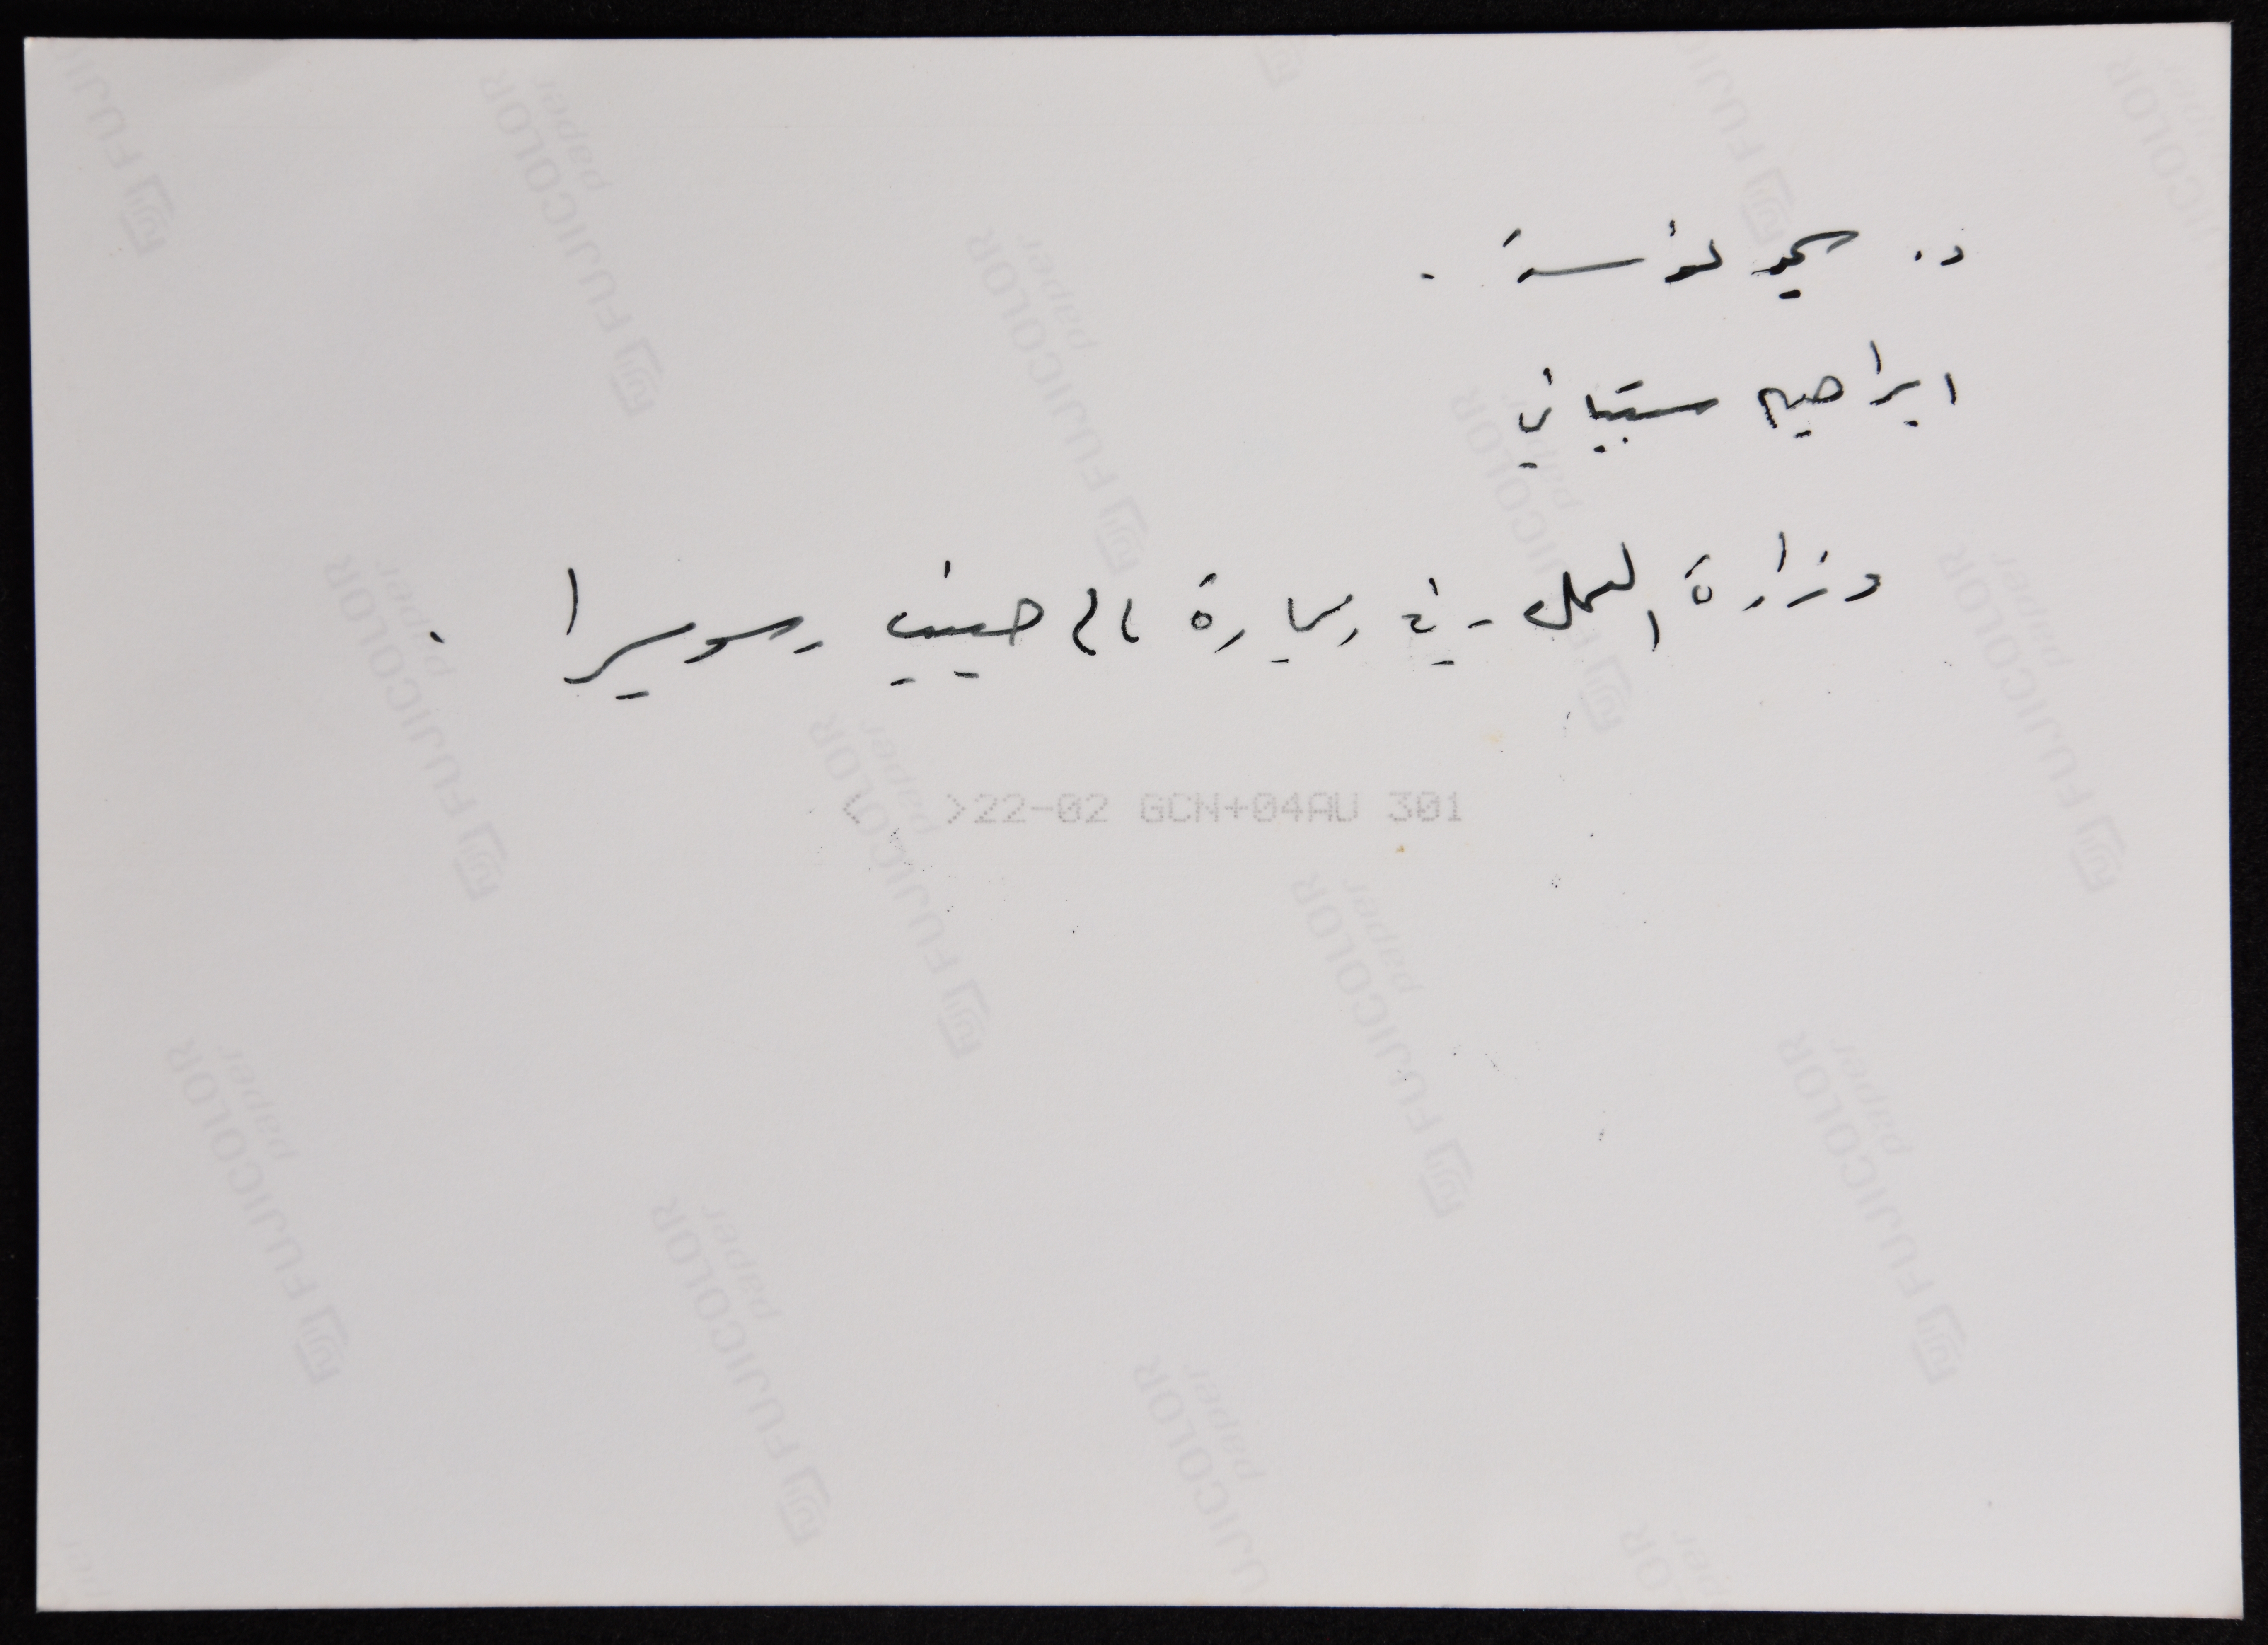 د.
ابراهيم ستيباني
وزارة العمل - في زيارة عالم جنيف سويسرا .
< >22-02 GCN+04AU 301
FUJICOLOR paper